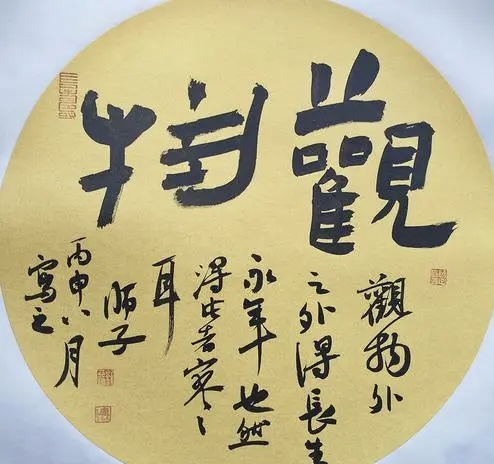 觀物
觀物外
之外得長生
永年也然
得此者寥々
耳
子
丙申八月
寫之